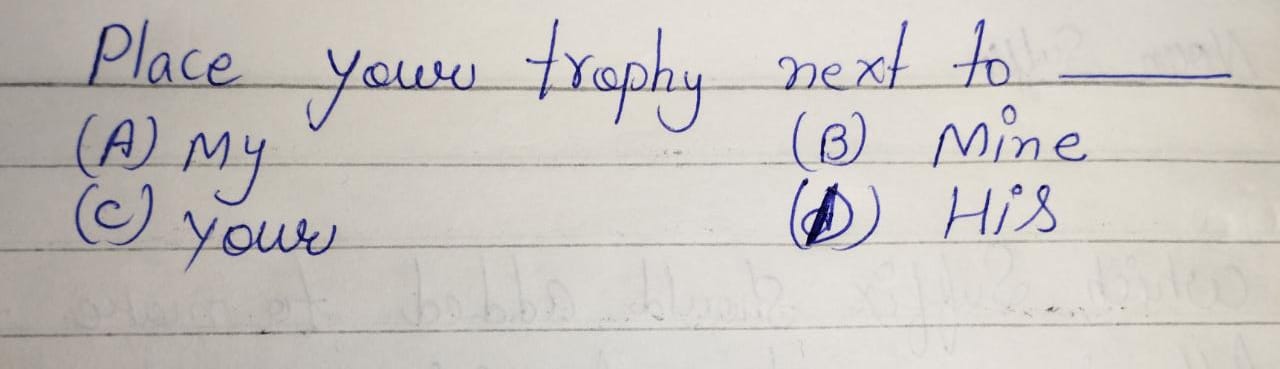 Place your trophy next to ______
(A) My (B) Mine
(C) your (D) His